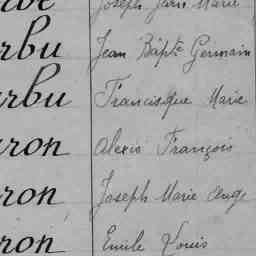 Joseph Jean Marie
rbu Jean Bapte Germain
rbu Francisque Marie
ron Alexis François
ron Joseph Marie Ange
ron Emile Louis